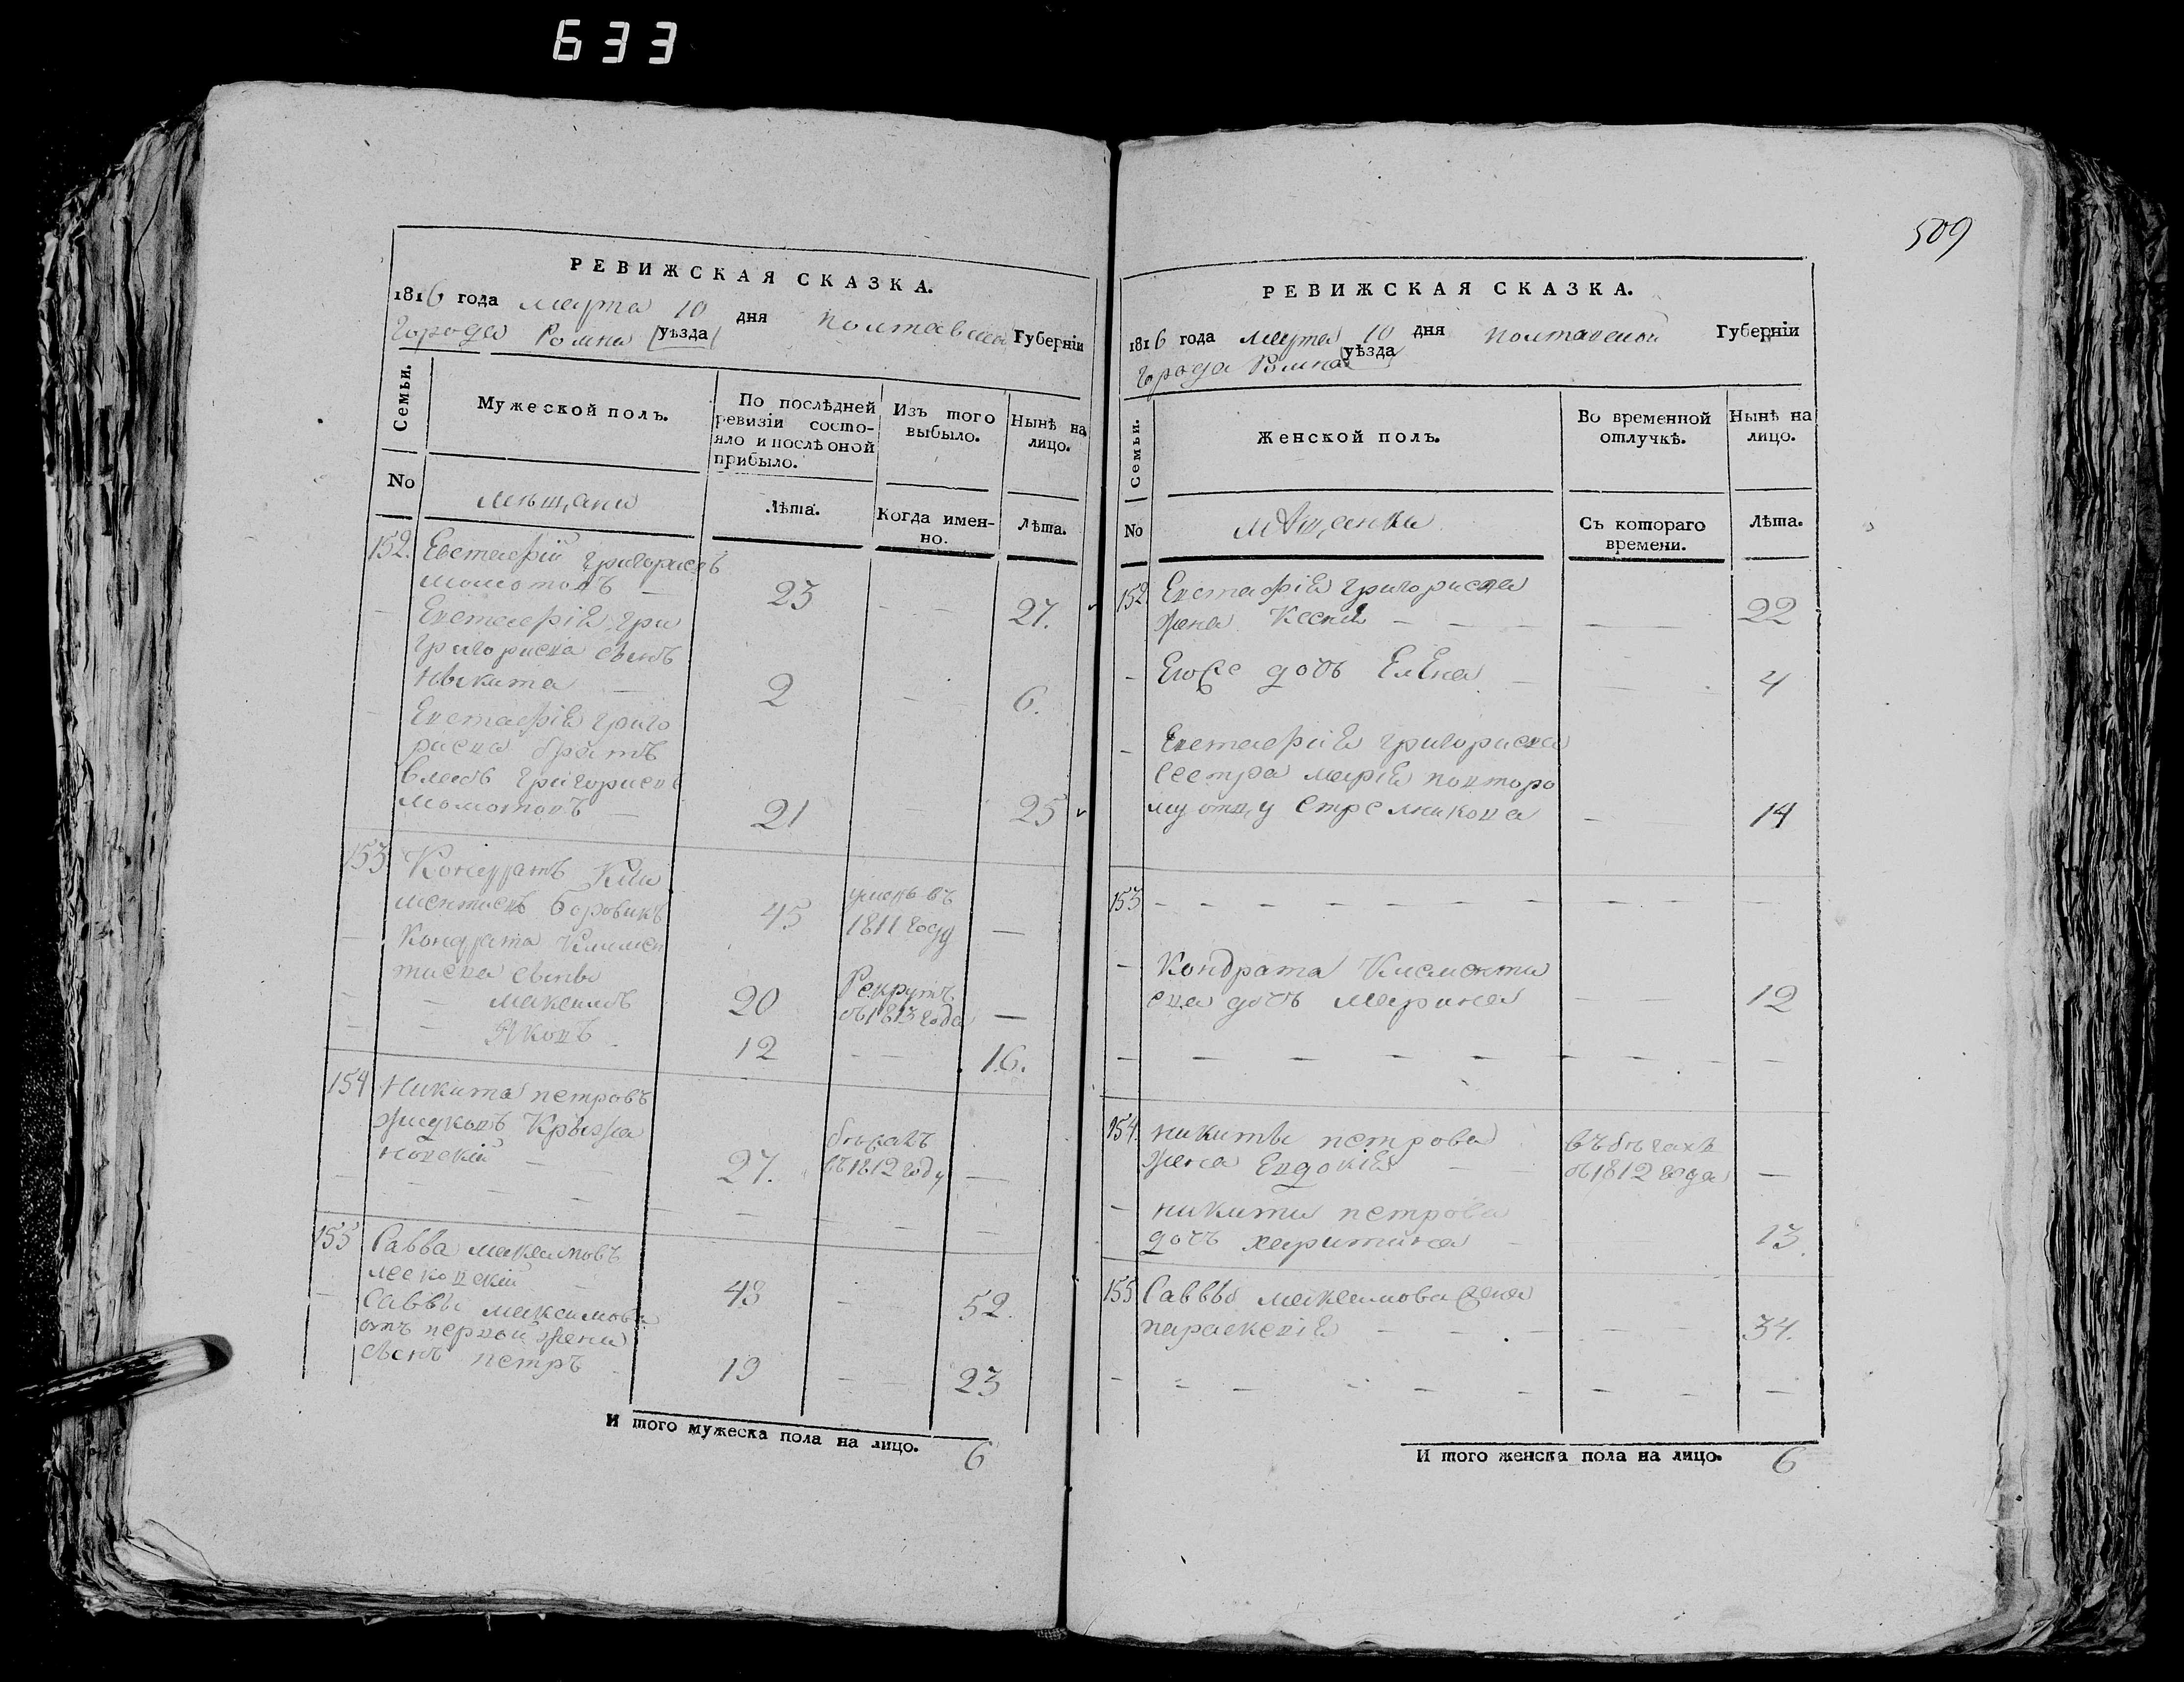 633
РЕВИЖСКАЯ СКАЗКА.
1816 года Марта 10 дня Полтавской Губерніи
города Ромна уѣзда
Семьи.
Мужеской полъ.
По послѣдней ревизіи состояло и послѣ оной прибыло.
Изъ того выбыло.
Нынѣ на лицо.
No
мѣщани
Лѣта.
Когда именно.
Лѣта.
152. Евстафій григориевъ
момотовъ — 23 — — 27.
— Евстафія гри
григориева сынъ
Никита — 2 — 6.
— Евстафія григо
риева братъ
власъ григориевъ
момотовъ — 21 — 25
153 Кондратъ Кли
ментиевъ боровикъ 45 умеръ въ 1811 году —
— Кондрата Климен
тиева сыны
— — максимъ 20 Рекрутъ съ 1813 года —
— — Яковъ 12 — — 16.
154 Никита петровъ
жидковъ Крыжа
новскій — — 27. бѣжалъ въ 1812 году —
— — — — — — — —
155 Савва максимовъ
лесковскій — 48 — 52.
— Саввы максимова
отъ первой жены
сынъ петръ 19 — — 23
И того мужеска пола на лицо. 6
509
РЕВИЖСКАЯ СКАЗКА.
1816 года марта 10 дня Полтавской Губерніи
города Ромна уѣзда
Семьи.
Женской полъ.
Во временной отлучкѣ.
Нынѣ на лицо.
No
мѣщанки
Съ котораго времени.
Лѣта.
152 Евстафія григориева
жена Ксенія — — — — — 22
— Его же дочь Елена — — 4
— Евстафия григориева
сестра марія повторо
му отцу стрелникова — — 14
153 — — — — — — — — — —
— Кондрата Климентия
ева дочь марина — — 12
— — — — — — — — —
154. никиты петрова
жена Евдокія — — въ бѣгахъ съ 1812 года —
— никиты петрова
дочъ харитина — 13.
155 Саввы максимова жена
параскевія — — — — — 34.
— — — — — — — — —
И того женска пола на лицо. 6